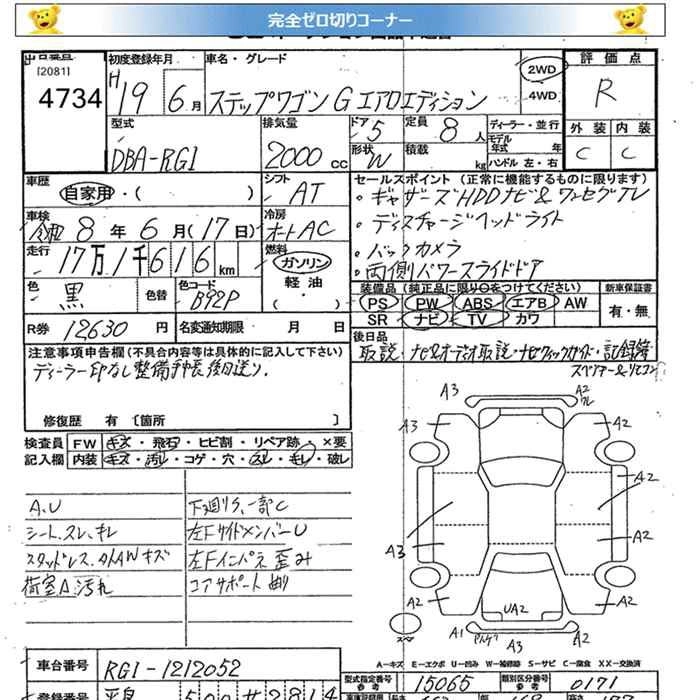 完全ゼロ切りコーナー
[2081]
4734
初度登録年月
H19 6月
車名・グレード
ステップワゴン G エアロエディション
2WD
4WD
評価点
R
外装 内装
C C
型式
DBA-RG1
排気量
2000 cc
ドア 5
形状 W
定員 8人
積載 kg
ディーラー・並行
モデル年式 年
ハンドル 左・右
車歴
自家用・( )
シフト
AT
車検
令和 8年 6月(17日)
冷房
オートAC
走行
17万1千616km
燃料
ガソリン
軽油
( )
色
黒
色替
色コード
B92P
R券 12630円
名変通知期限 月 日
セールスポイント (正常に機能するものに限ります)
・ギャザーズHDDナビ&ワンセグTV
・ディスチャージヘッドライト
・バックカメラ
・両側パワースライドドア
装備品(純正品に限り○をつけてください)
PS PW ABS エアB AW
SR ナビ TV カワ
新車保証書
有・無
後日品
取説・ナビ&オーディオ取説・ナビクイックガイド・記録簿
スペアキー&リモコン
注意事項申告欄(不具合内容等は具体的に記入して下さい)
ディーラー印なし整備手帳後日送り。
修復歴 有〔箇所 〕
検査員記入欄
FW キズ・飛石・ヒビ割・リペア跡・×要
内装 キズ・汚レ・コゲ・穴・スレ・キレ・破レ
A.U
シート、スレ、キレ
スタッドレス、タイヤAWキズ
荷室A 汚れ
下廻りサ、一部C
左FサイドメンバーU
左Fインパネ歪み
コアサポート曲り
A3
A2
A3
A2
A2
A2
A3
A2
A2
A2
UA2
A1
A3
A2
A-キズ E-エクボ U-凹み W-補修跡 S-サビ C-腐食 XX-交換済
車台番号
RG1-1212052
型式指定番号
参考
15065
類別区分番号
参考
0171
登録番号
500
2814